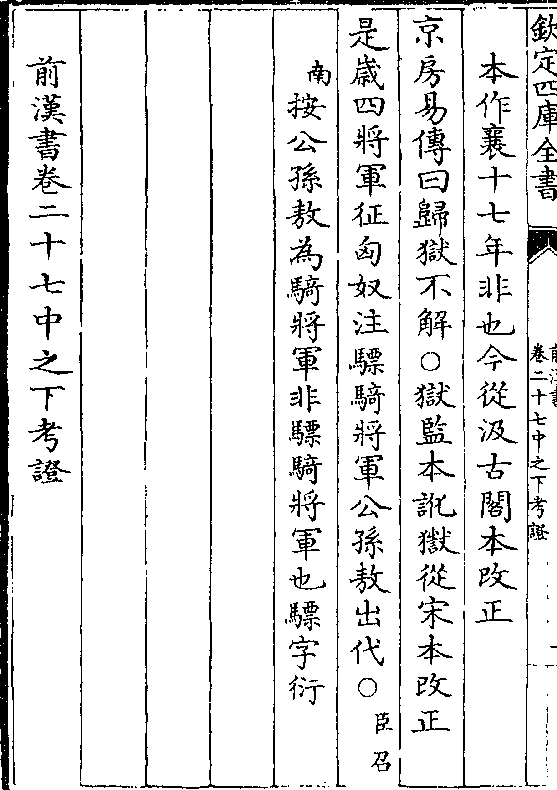 欽定四庫全書
前漢書
卷二十七中之下考證
本作襄十七年非也今從汲古閣本改正
京房易傳曰歸獄不解○獄監本訛嶽從宋本改正
是歲四將軍征匈奴注驃騎將軍公孫敖出代○臣召
南按公孫敖為騎將軍非驃騎將軍也驃字衍
前漢書卷二十七中之下考證